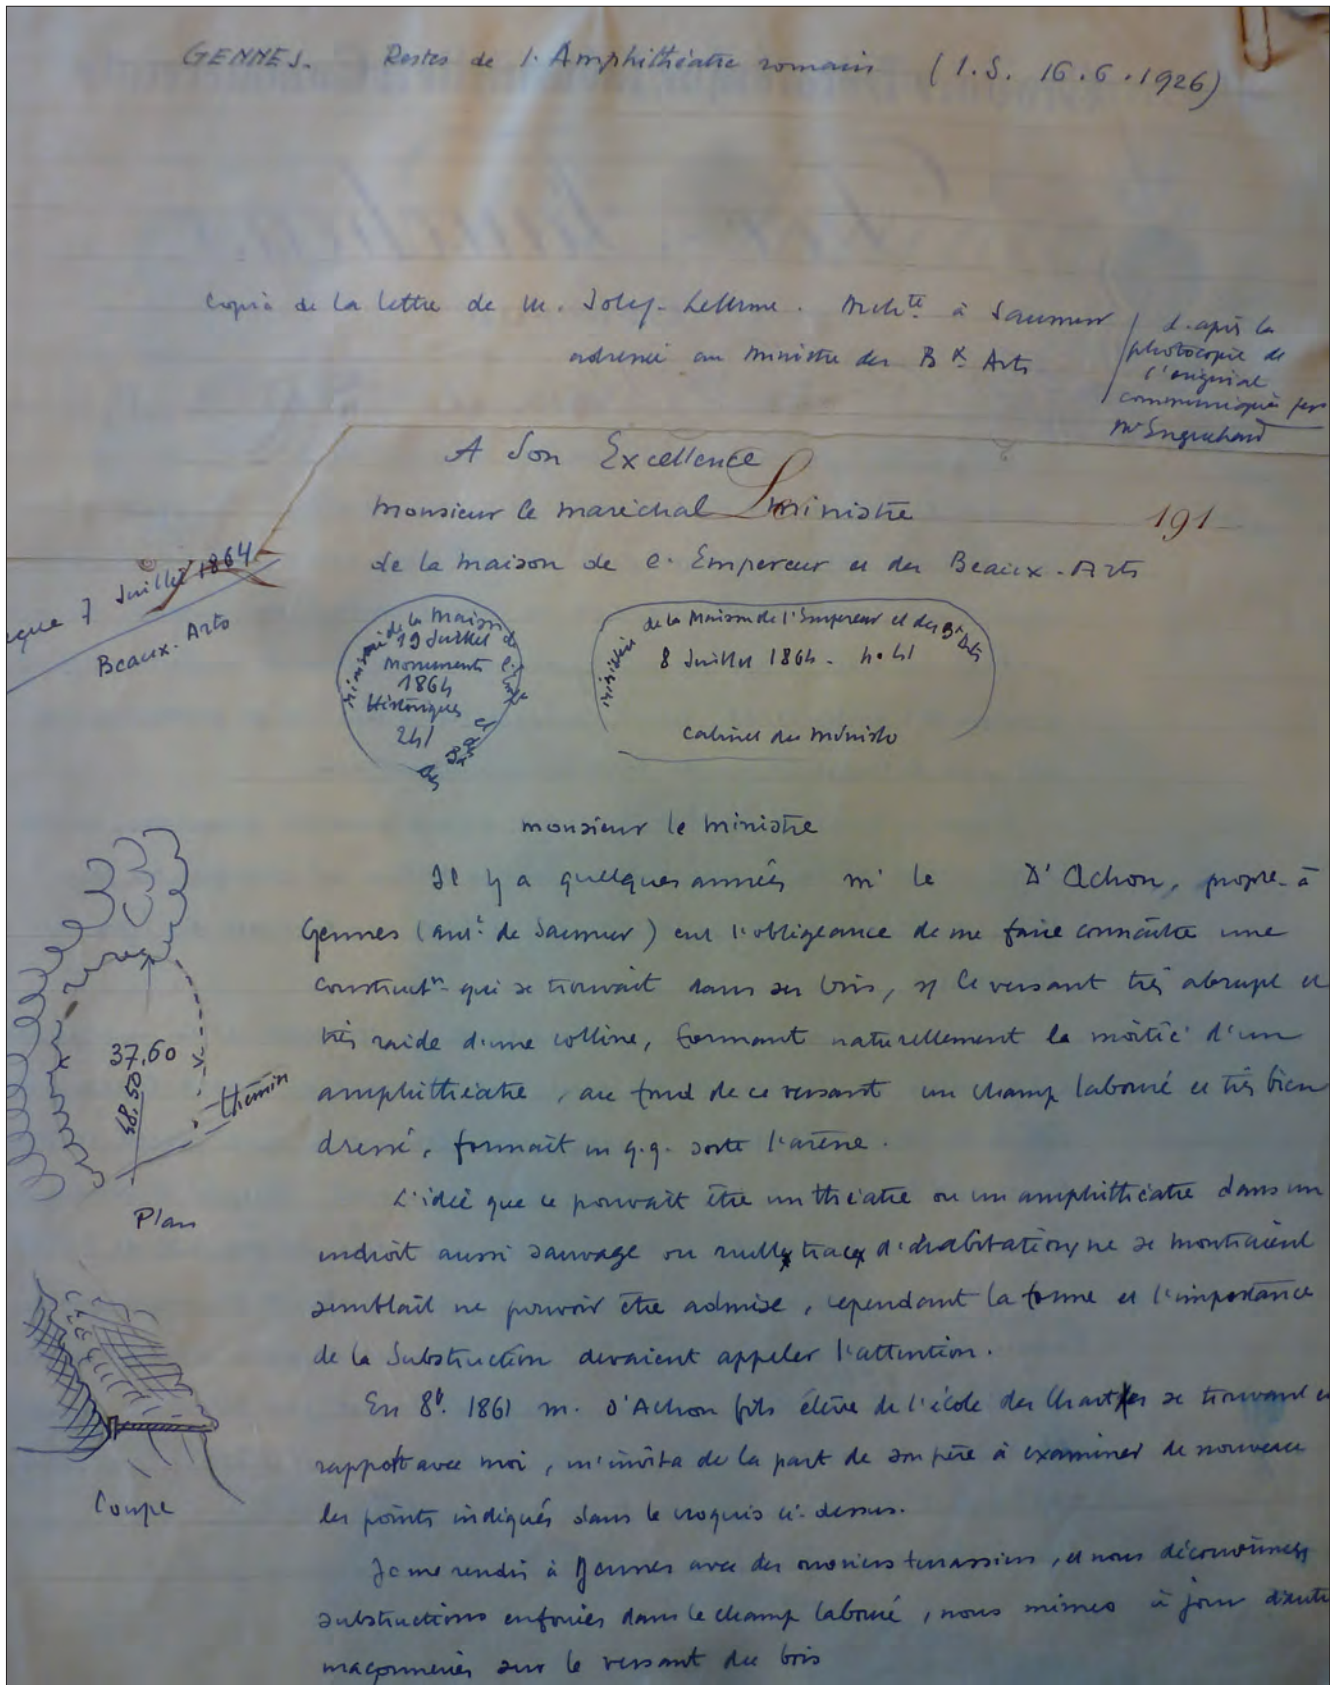 GENNES. Restes de l'Amphithéatre romain (I.S. 16.6.1926)
Copie de la lettre de M. Joly-Leterme. Archte à Saumur
adressée au Ministre des Bx Arts
d'après la
photocopie de
l'original
communiquée par
Mr Enguehard
A Son Excellence
Monsieur le maréchal Ministre
191
de la maison de l'Empereur et des Beaux-Arts
7 Juillet 1864
Beaux-Arts
Ministère de la Maison de l'Emp. et des Bx Arts
19 Juillet
Monuments
1864
Historiques
241
Ministère de la Maison de l'Empereur et des Bx Arts
8 Juillet 1864 - n. 41
Cabinet du Ministre
monsieur le ministre
Il y a quelques années mr le D'Achon, propre à
Gennes (arrt de Saumur) eut l'obligeance de me faire connaître une
constructn qui se trouvait dans ses bois, sr le versant très abrupt et
très raide d'une colline, formant naturellement la moitié d'un
amphithéatre, au fond de ce versant un champ labouré et très bien
dressé, formait en q.q. sorte l'arène.
37,60
48,50
chemin
Plan
L'idée que ce pouvait être un théatre ou un amphithéatre dans un
endroit aussi sauvage ou nulle trace d'habitation ne se montraient
semblait ne pouvoir être admise, cependant la forme et l'importance
de la Substruction devaient appeler l'attention.
En 8b. 1861 m. D'Achon fils élève de l'école des Chartes se trouvant en
rapport avec moi, m'invita de la part de son père à examiner de nouveau
les points indiqués dans le croquis ci-dessus.
Coupe
Je me rendis à Gennes avec des ouvriers terrassiers, et nous découvrîmes
substructions enfouies dans le champ labouré, nous mîmes à jour d'autres
maçonneries sur le versant du bois